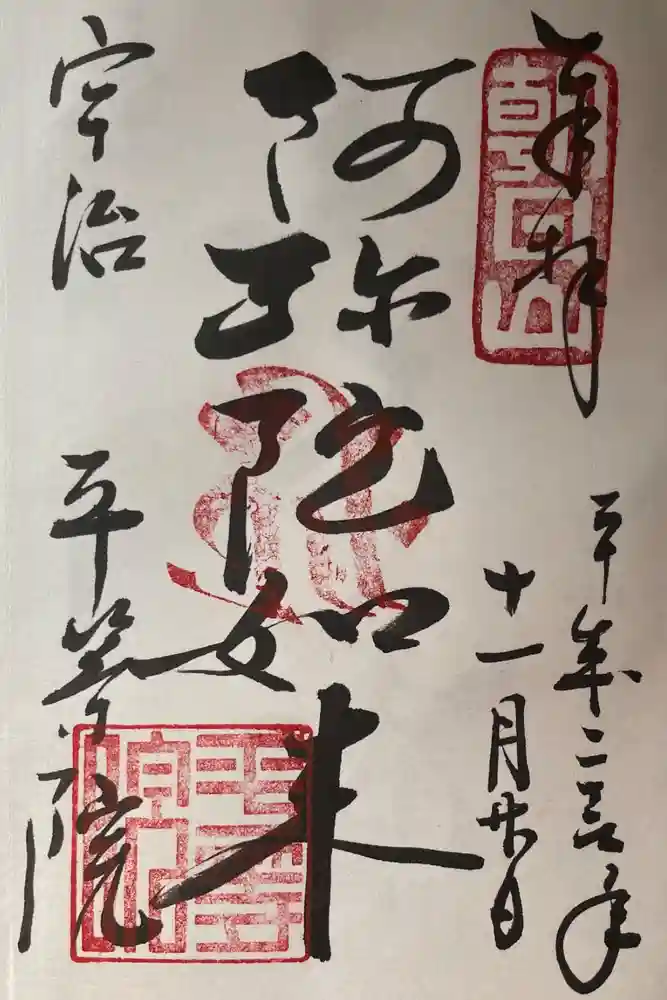 奉拝
朝日山
平成二年
十一月廿日
阿弥陀如来
宇治
平等院
平等院印